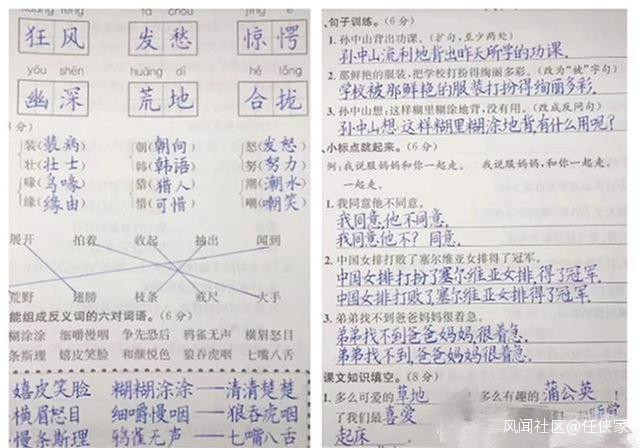 狂风 发愁 惊愕
yōu shēn huāng dì hé lǒng
幽深 荒地 合拢
分)
装(装病) 朝(朝向) 怒(发怒)
壮(壮士) 韩(韩语) 努(努力)
喙(鸟喙) 猎(猎人) 潮(潮水)
缘(缘由) 惜(可惜) 嘲(嘲笑)
展开 拍着 收起 抽出 闻到
荒野 翅膀 枝条 戒尺 大手
能组成反义词的六对词语。(6分)
糊涂涂 细嚼慢咽 争先恐后 鸦雀无声 横眉怒目
条斯理 嬉皮笑脸 和颜悦色 狼吞虎咽 七嘴八舌
嬉皮笑脸 糊糊涂涂——清清楚楚
横眉怒目 细嚼慢咽——狼吞虎咽
慢条斯理 鸦雀无声——七嘴八舌
、句子训练。(6分)
1. 孙中山背出功课。(扩句,至少两处)
孙中山流利地背出昨天所学的功课.
2. 那鲜艳的服装,把学校打扮得绚丽多彩。(改为“被”字句)
学校被那鲜艳的服装打扮得绚丽多彩.
3. 孙中山想:这样糊里糊涂地背,没有用。(改成反问句)
孙中山想:这样糊里糊涂地背有什么用呢?
小标点跳起来。(6分)
例:我说服妈妈和你一起走。 我说服妈妈,和你一起走。
一起走。
1. 我同意他不同意。
我同意,他不同意.
我同意他不?同意.
2. 中国女排打败了塞尔维亚女排得了冠军。
中国女排打扮了塞尔维亚女排,得了冠军.
中国女排打败了,塞尔维亚女排得了冠军.
3. 弟弟找不到爸爸妈妈很着急。
弟弟找不到爸爸妈妈,很着急.
弟弟找不到,爸爸妈妈很着急.
课文知识填空。(8分)
1. 多么可爱的草地 多么有趣的蒲公英!
了我们最喜爱
起床
风闻社区@任侠家